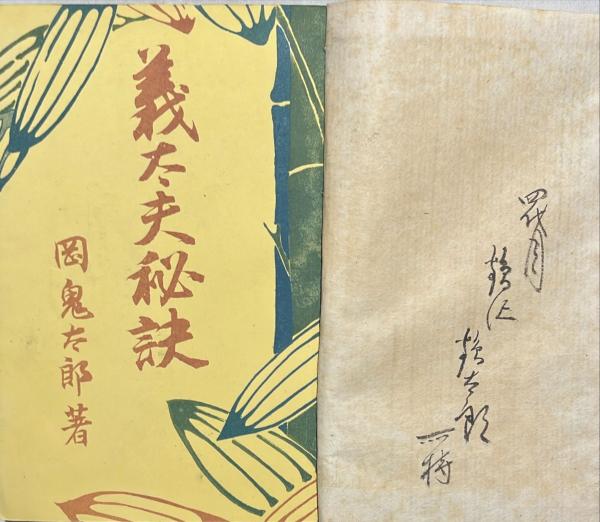 義太夫秘訣
岡鬼太郎著
四代目
鶴沢
鶴太郎
所持